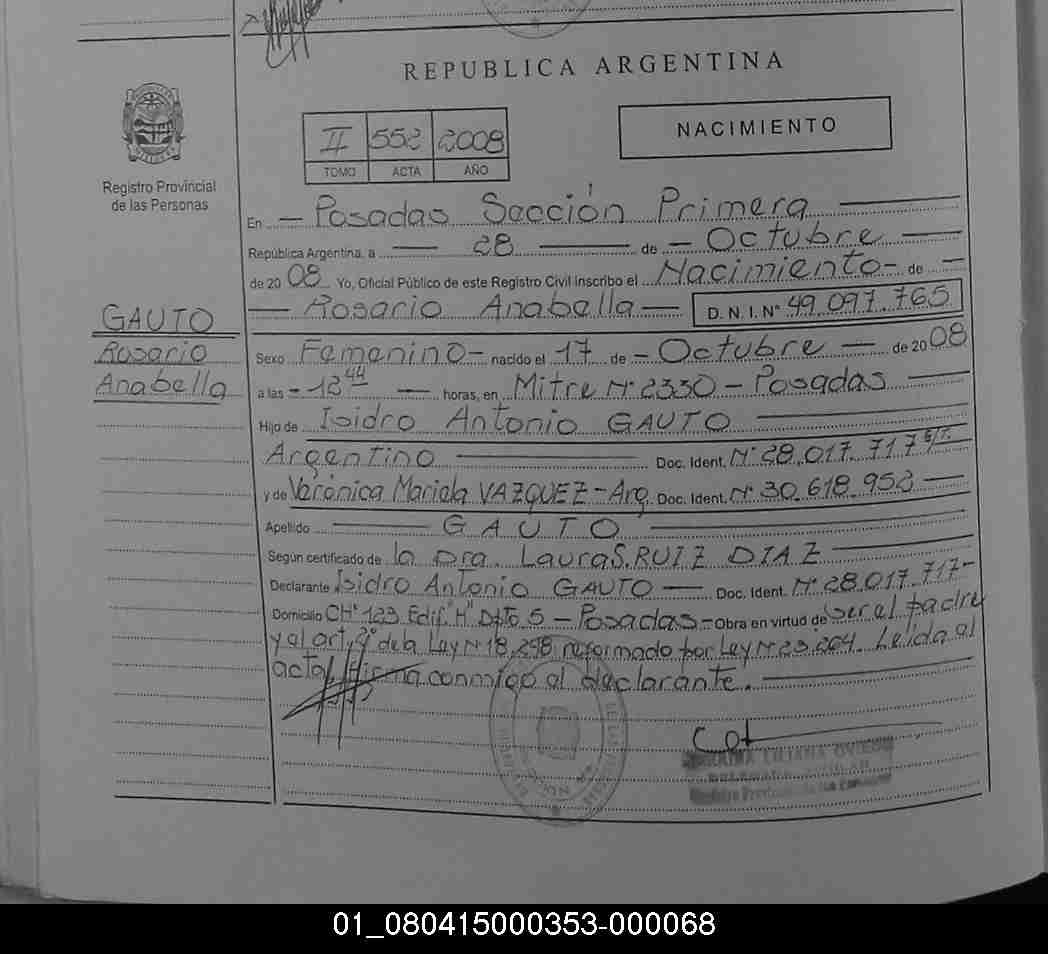 REPUBLICA ARGENTINA
Registro Provincial
de las Personas
II 552 2008
TOMO ACTA AÑO
NACIMIENTO
En Posadas Sección Primera
República Argentina, a 28 de Octubre
de 2008 Yo, Oficial Público de este Registro Civil inscribo el Nacimiento de
Rosario Anabella D. N. I. N° 49.097.765
GAUTO
Rosario
Anabella
Sexo Femenino nacido el 17 de Octubre de 2008
a las 12 44 horas, en Mitre N° 2330 - Posadas
Hijo de Isidro Antonio GAUTO
Argentino Doc. Ident. N° 28.017.717 S/T.
y de Verónica Mariela VAZQUEZ - Arg. Doc. Ident. N° 30.618.952
Apellido GAUTO
Según certificado de la Dra. Laura S. RUIZ DIAZ
Declarante Isidro Antonio GAUTO Doc. Ident. N° 28.017.717-
Domicilio CH° 123 Edif. "H" Dpto 5 - Posadas - Obra en virtud de ser el padre
y al art. 2° de la Ley N° 18.248 reformado por Ley N° 23.264. Leida el
acta, firma conmigo el declarante.
LILIANA OVIEDO
01_080415000353-000068